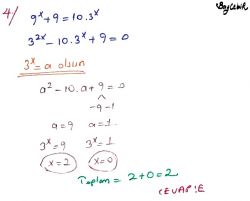 BayÇakık
4/ 9^x + 9 = 10.3^x
3^2x - 10.3^x + 9 = 0
3^x = a olsun
a^2 - 10.a + 9 = 0
-9 -1
a = 9 a = 1
3^x = 9 3^x = 1
x = 2 x = 0
Toplam = 2 + 0 = 2
CEVAP: E